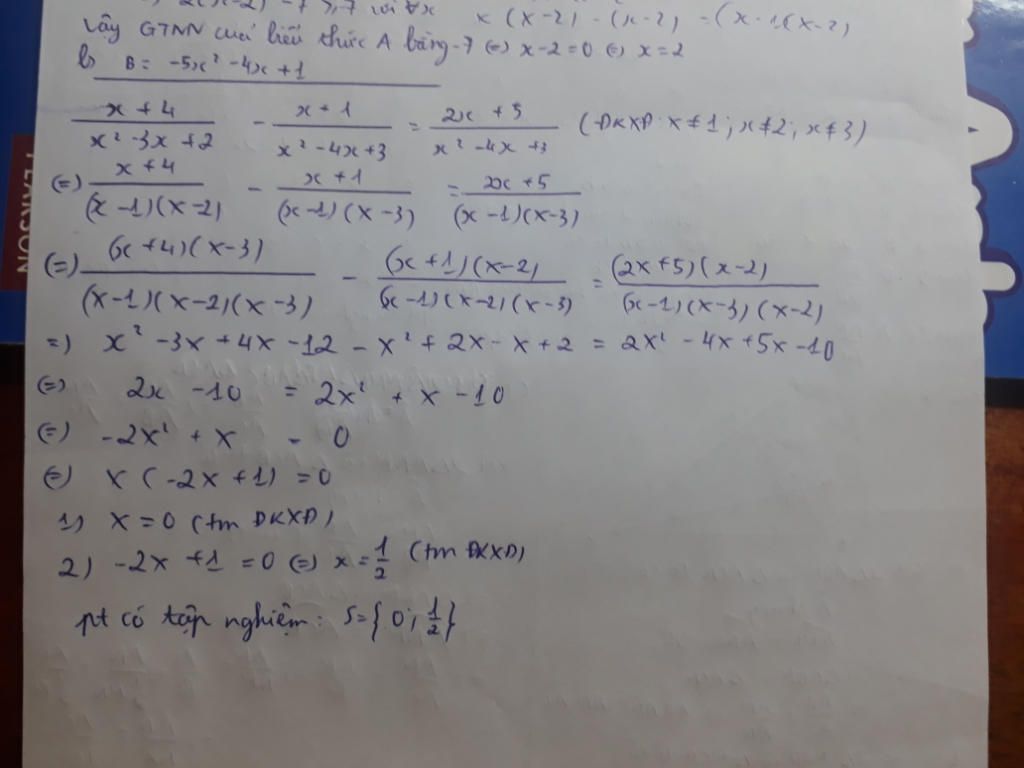 x (x-2) - (x-2) = (x-1)(x-2)
Vậy GTNN của biểu thức A bằng -7 (=) x-2=0 (=) x=2
b) B = -5x² -4x +1
x+4 / x²-3x+2 - x+1 / x²-4x+3 = 2x+5 / x²-4x+3 (ĐKXĐ: x≠1; x≠2; x≠3)
(=) x+4 / (x-1)(x-2) - x+1 / (x-1)(x-3) = 2x+5 / (x-1)(x-3)
(=) (x+4)(x-3) / (x-1)(x-2)(x-3) - (x+1)(x-2) / (x-1)(x-2)(x-3) = (2x+5)(x-2) / (x-1)(x-3)(x-2)
=) x² -3x +4x -12 - x² + 2x - x + 2 = 2x² - 4x + 5x - 10
(=) 2x -10 = 2x² + x -10
(=) -2x² + x = 0
(=) x (-2x+1) = 0
1) x = 0 (tm ĐKXĐ)
2) -2x +1 = 0 (=) x = 1/2 (tm ĐKXĐ)
pt có tập nghiệm: S = {0; 1/2}
PEARSON